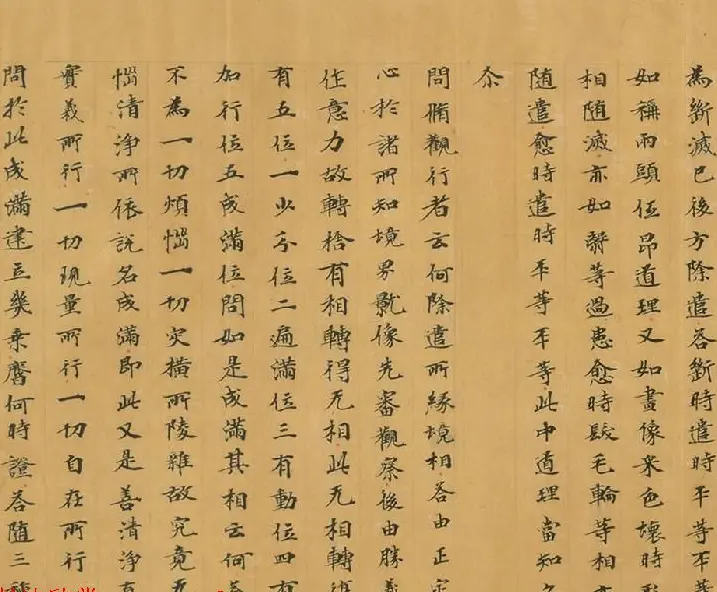 為斷滅已後方除遣答斷時遣時平等平等
如稱兩頭低昂道理又如畫像衆色壞時形
相隨滅亦如翳等過患愈時髮毛輪等相
隨遣愈時遣時平等平等此中道理當知
尒
問脩觀行者云何除遣所緣境相答由正定
心於諸所知境界影像先審觀察後由勝義
住意力故轉捨有相轉得无相此无相轉
有五位一少分位二遍滿位三有動位四有
加行位五成滿位問如是成滿其相云何答
不為一切煩惱一切灾橫所陵雜故究竟
惱清淨所依說名成滿即此又是善清淨
實義所行一切現量所行一切自在所行
問於此成滿建立幾乘齊何時證答隨三